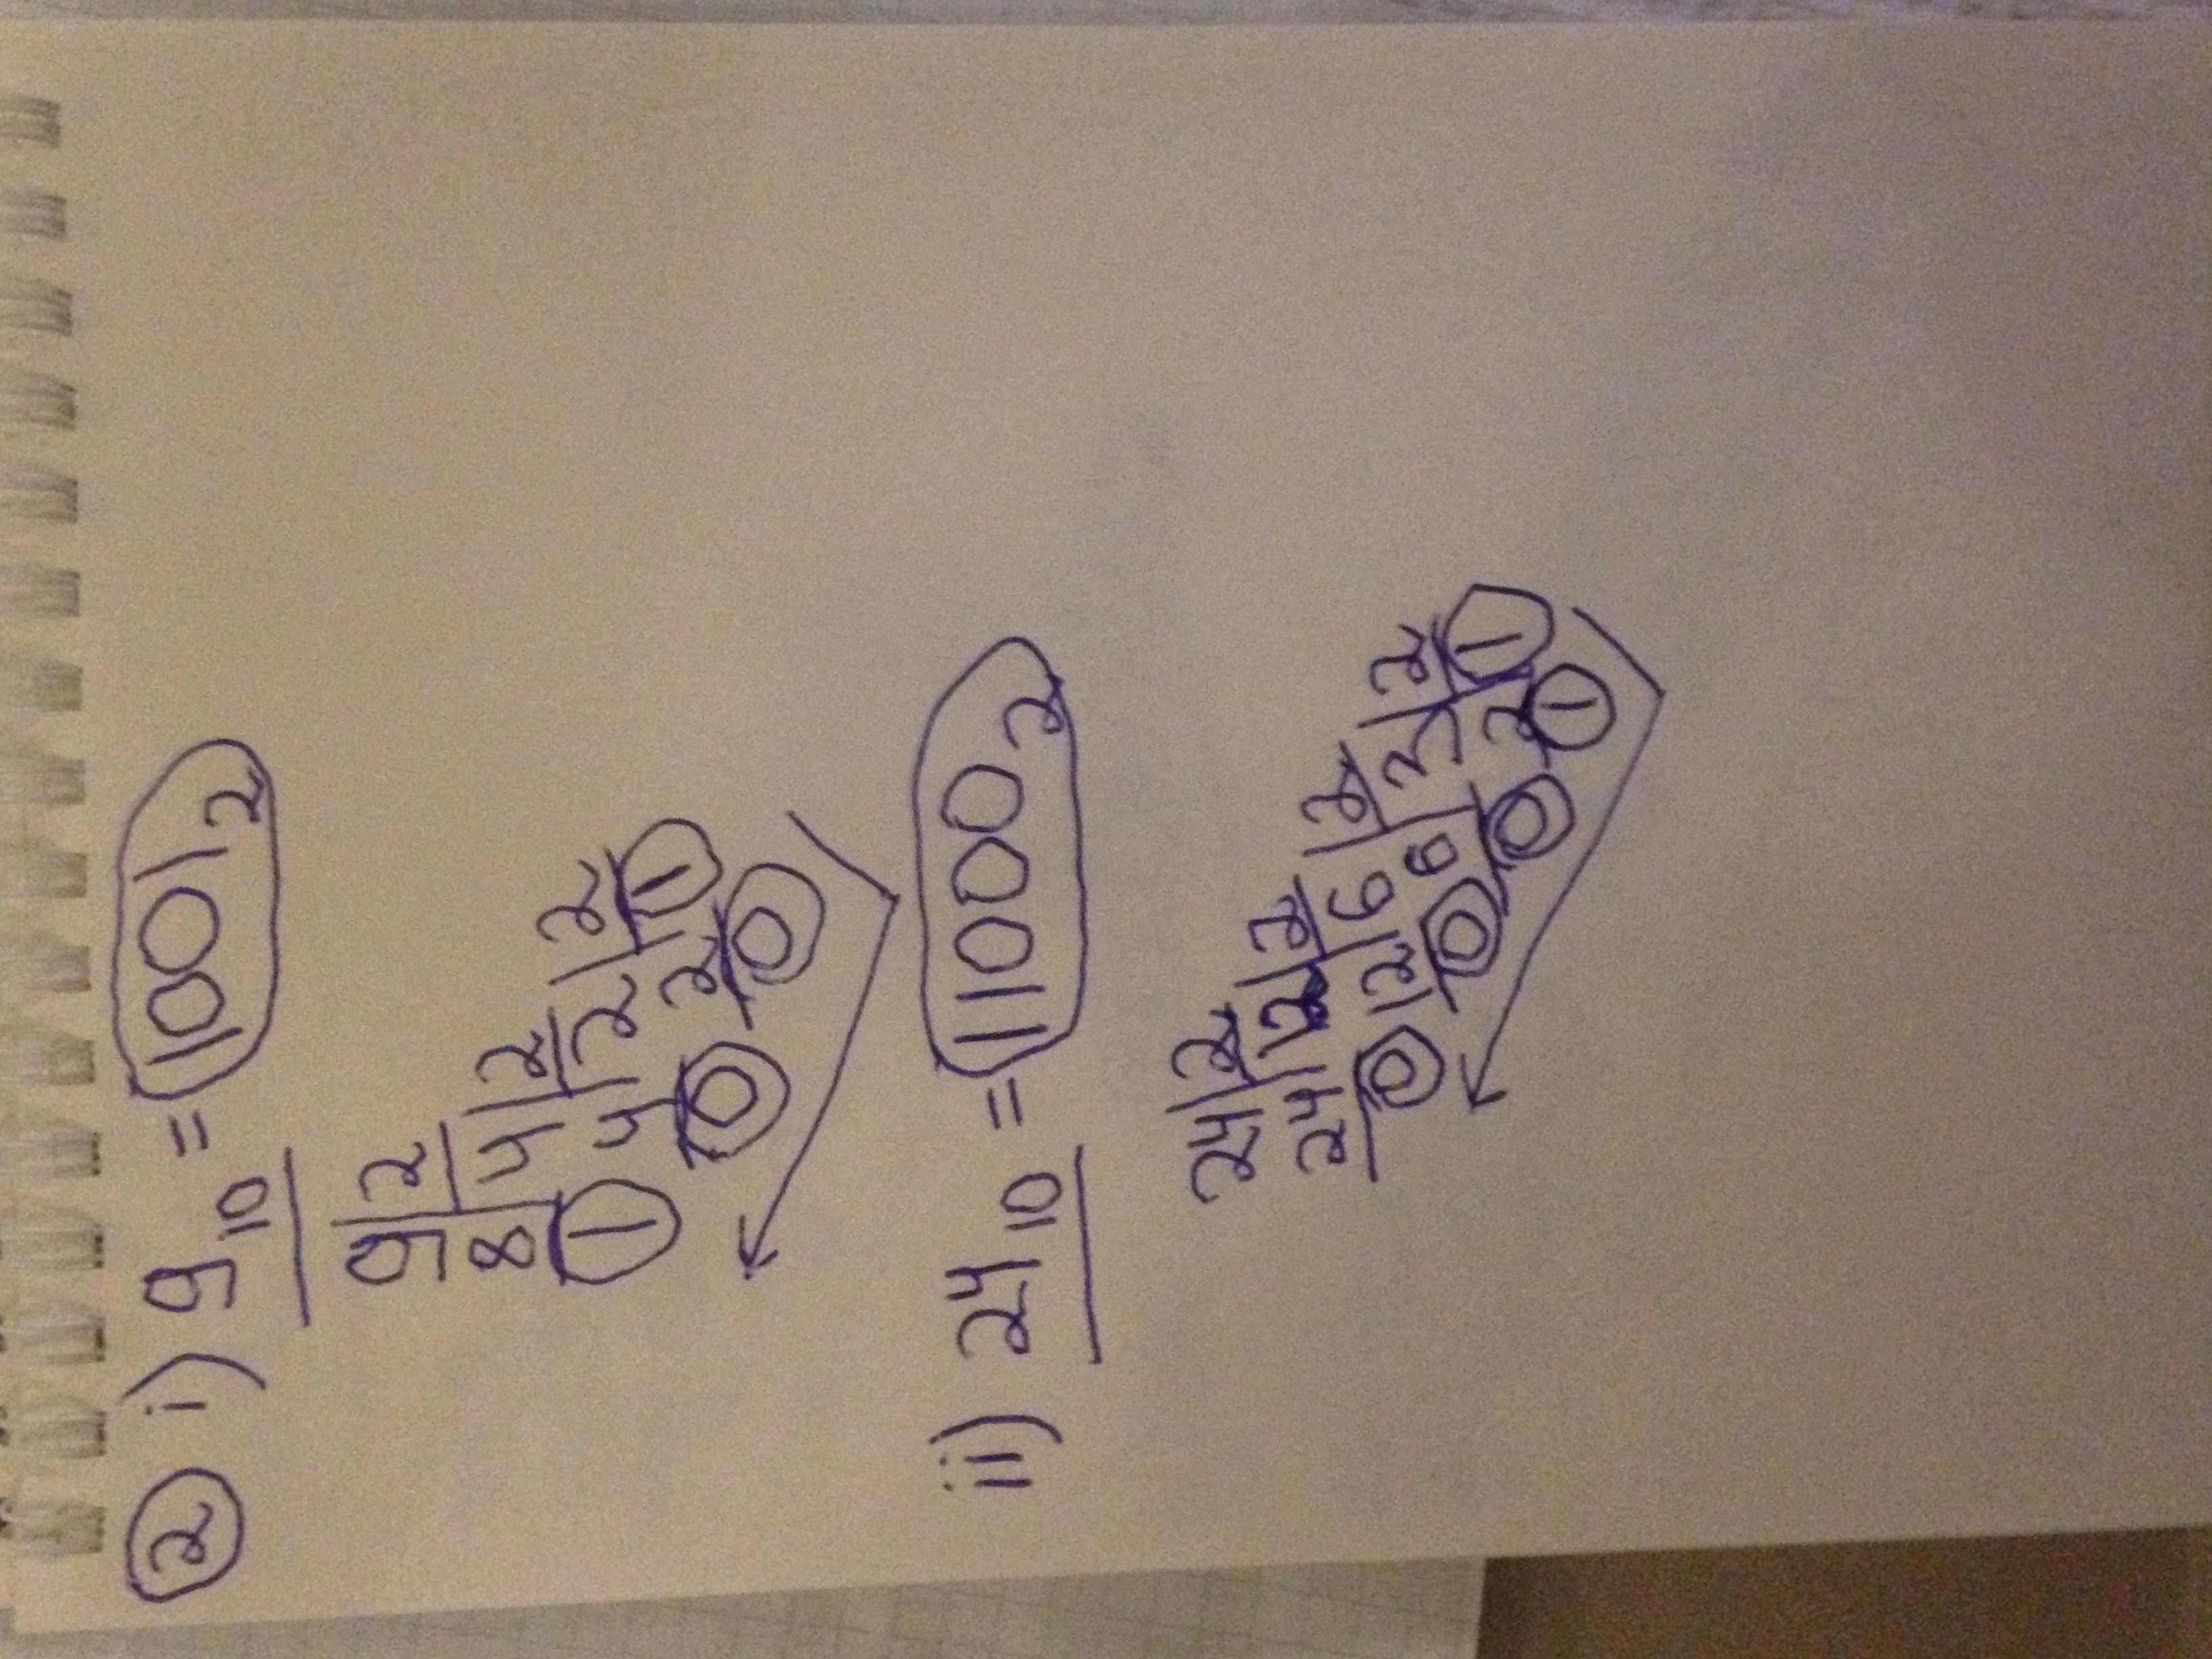 2 i) 9₁₀ = 1001₂
9 2
8 4 2
1 4 2 2
0 2 1
0
ii) 24₁₀ = 11000₂
24 2
24 12 2
0 12 6 2
0 6 3 2
0 2 1
1